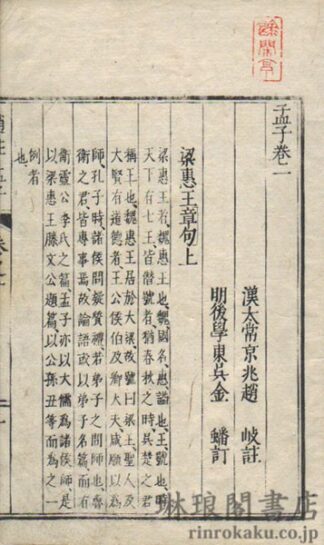 孟子卷一
漢太常京兆趙 岐註
明後學東吳金 蟠訂
梁惠王章句上
梁惠王者魏惠王也魏國名惠謚也王號也時
天下有七王皆僭號者猶春秋之時吳楚之君
稱王也魏惠王居於大梁故號曰梁王聖人及
大賢有道德者王公侯伯及卿大夫咸願以為
師孔子時諸侯問疑質禮若弟子之問師也魯
衛之君皆專事焉故論語或以弟子名篇而有
衛靈公季氏之篇孟子亦以大儒為諸侯師是
以梁惠王滕文公題篇以公孫丑等而為之一
例者也
琳琅閣書店
rinrokaku.co.jp